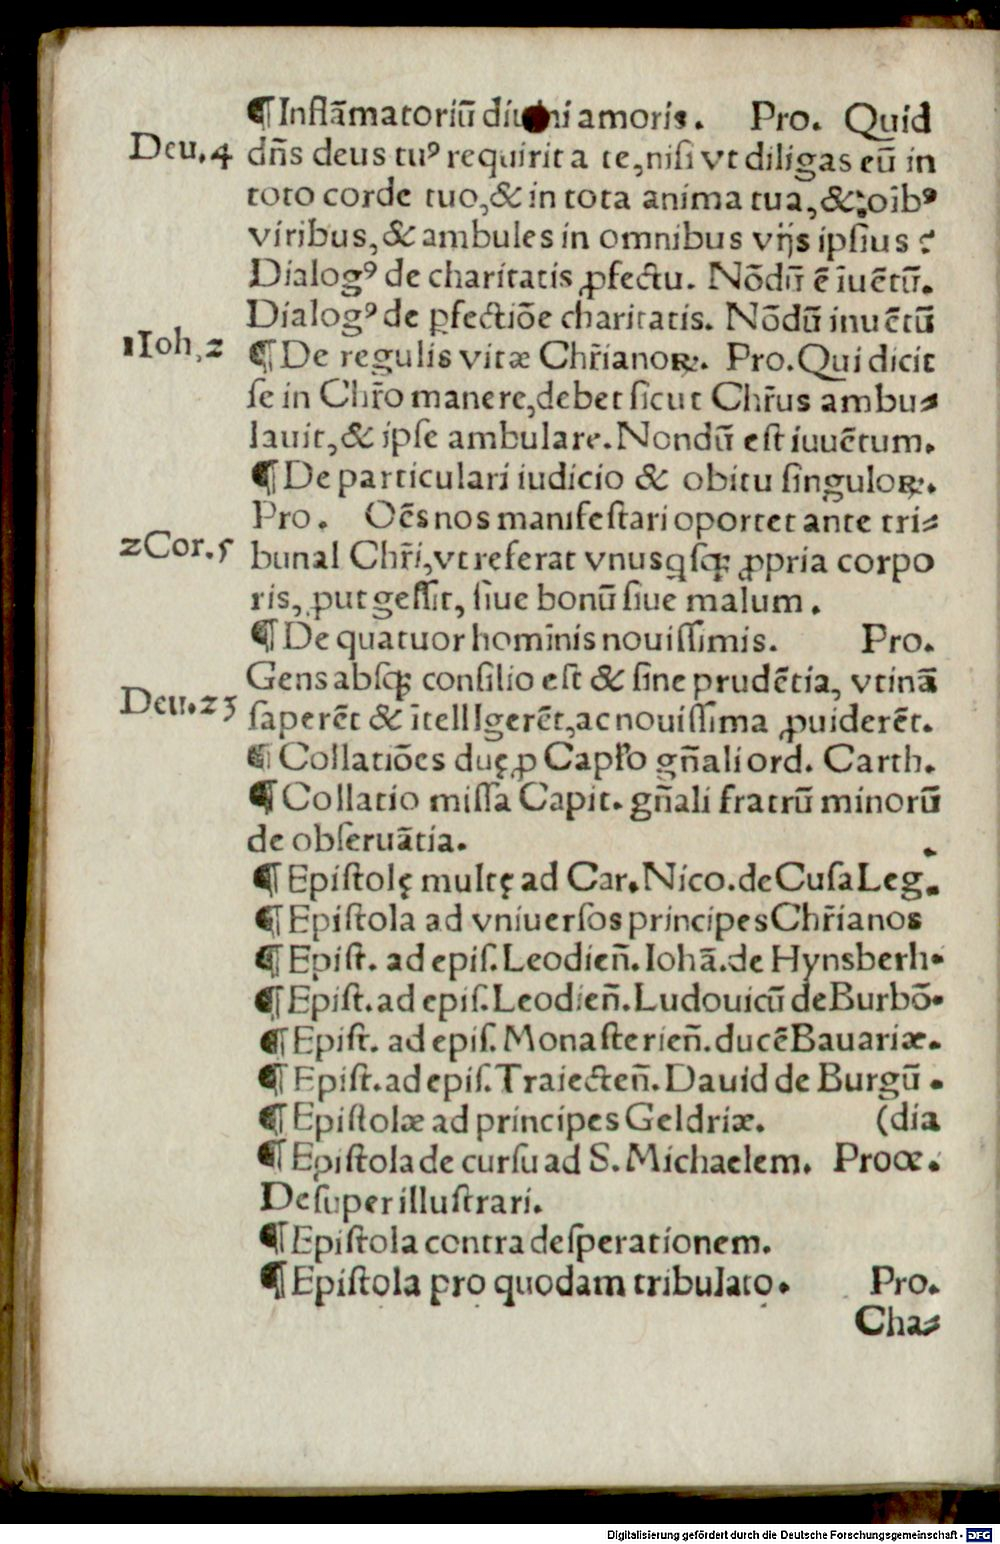 ¶ Inflãmatoriũ diuini amoris. Pro. Quid
Deu.4 dñs deus tuꝰ requirit a te, nisi vt diligas eũ in
toto corde tuo, & in tota anima tua, & oĩbꝰ
viribus, & ambules in omnibus vijs ipsius ?
Dialogꝰ de charitatis ꝓfectu. Nõdũ ẽ ĩuẽtũ.
Dialogꝰ de ꝑfectiõe charitatis. Nõdũ inuẽtũ
1Ioh,2 ¶ De regulis vitæ Chr̃ianoꝝ. Pro. Qui dicit
se in Chr̃o manere, debet sicut Chr̃us ambu⸗
lauit, & ipse ambulare. Nondũ est iuuẽtum.
¶ De particulari iudicio & obitu singuloꝝ.
Pro. Oẽs nos manifestari oportet ante tri⸗
2Cor.5 bunal Chr̃i, vt referat vnusqsqꝫ ꝓpria corpo
ris, ꝓut gessit, siue bonũ siue malum.
¶ De quatuor hominis nouissimis. Pro.
Gens absqꝫ consilio est & sine prudẽtia, vtinã
Deu.23 saperẽt & ĩtellIgerẽt, ac nouissima ꝓuiderẽt.
¶ Collatiões duę ꝑ Capło gñali ord. Carth.
¶ Collatio missa Capit. gñali fratrũ minorũ
de obseruãtia.
¶ Epistolę multę ad Car. Nico. de Cusa Leg.
¶ Epistola ad vniuersos principes Chr̃ianos
¶ Epist. ad epis. Leodieñ. Iohã. de Hynsberh.
¶ Epist. ad epis. Leodieñ. Ludouicũ de Burbõ.
¶ Epist. ad epis. Monasterieñ. ducẽ Bauariæ.
¶ Epist. ad epis. Traiecteñ. Dauid de Burgũ.
¶ Epistolæ ad principes Geldriæ. (dia
¶ Epistola de cursu ad S. Michaelem. Proœ.
De super illustrari.
¶ Epistola contra desperationem.
¶ Epistola pro quodam tribulato. Pro.
Cha⸗
Digitalisierung gefördert durch die Deutsche Forschungsgemeinschaft - DFG